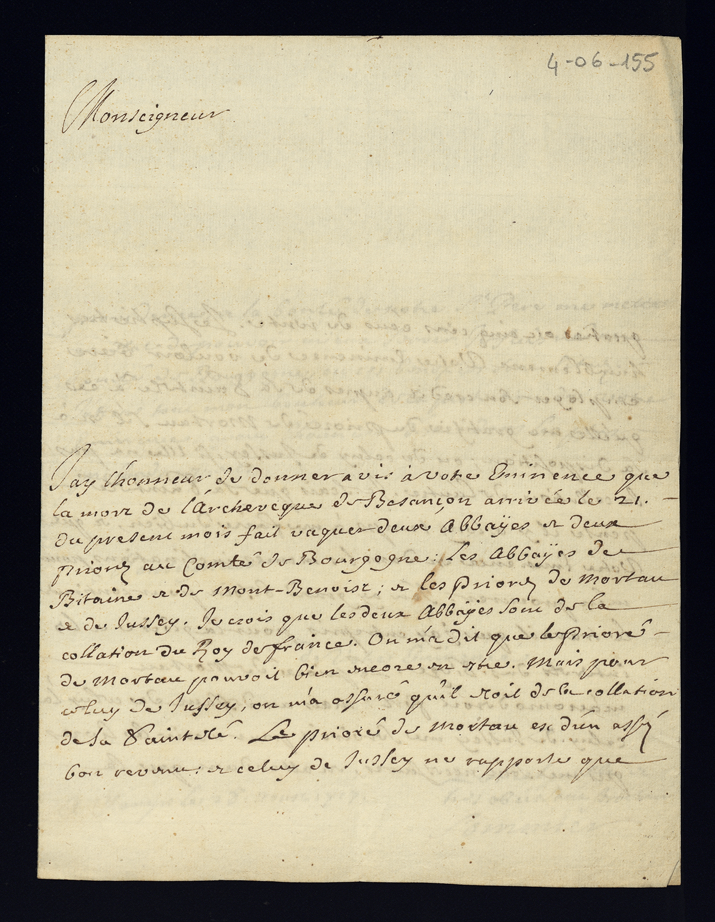 4-06-155
Monseigneur
J'ay l'honneur de donner avis à votre Eminence que
la mort de l'Archeveque de Besançon arrivée le 21.
du present mois fait vaquer deux Abbayes & deux
prieurez au Comté de Bourgogne: Les Abbayes de
Bitaine & de Mont-Benoist; & les prieurez de Mortau
& de Jussey. Je crois que les deux Abbayes sont de la
collation du Roy de france. On m'a dit que le prioré
de Mortau pouvoit bien encore en etre. Mais pour
celuy de Jussey, on m'a assuré qu'il etoit de la collation
de sa Sainteté. Le prioré de Mortau est d'un assez
bon revenu: & celuy de Jussey ne rapporte que